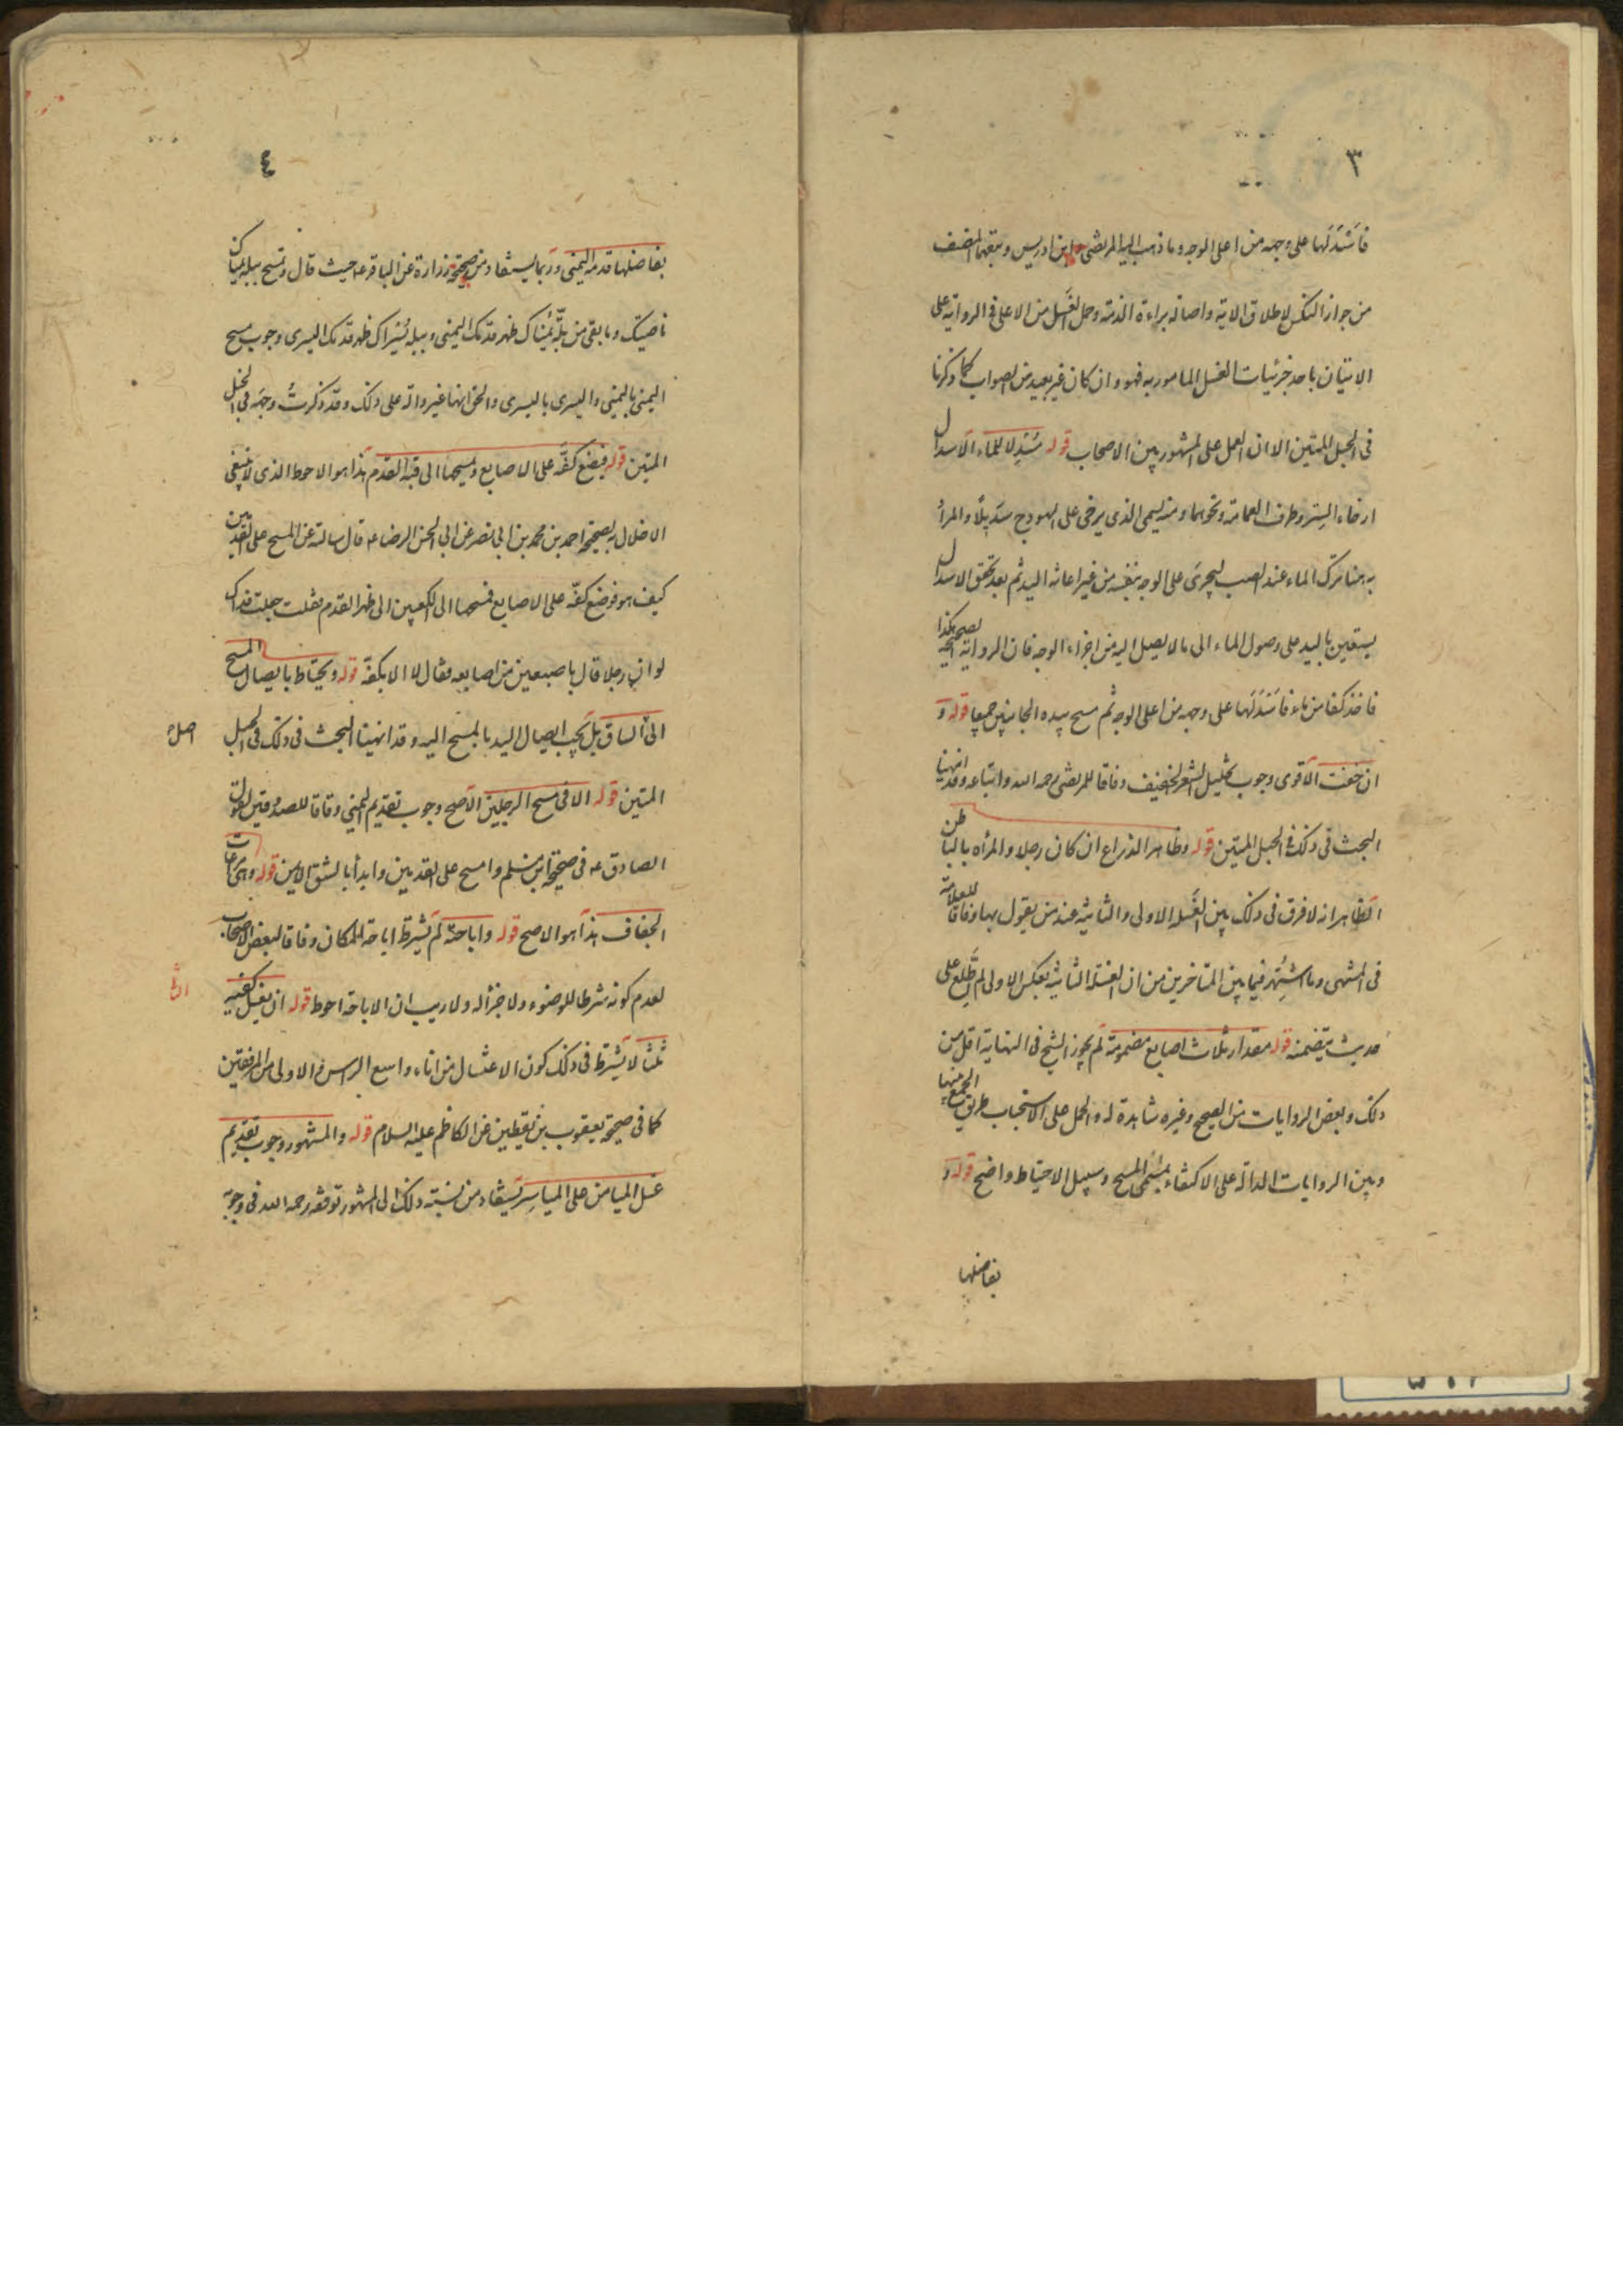 ٣
فاسدلها على وجهه من اعلى الوجه وما ذهب اليه المرتضى وابن ادريس وتبعهما المصنف
من جواز النكس لاطلاق الاية واصالة براءة الذمة وحمل الغسل من الاعلى فى الرواية على
الاتيان باحد جزئيات الغسل المامور به فهو وان كان غير بعيد من الصواب كما ذكرنا
فى الحبل المتين الا ان العمل على المشهور بين الاصحاب قوله مسدلا للماء الاسدال
ارخاء الستر وطرف العمامة ونحوهما ومنه يسمى الذى يرخى على الهودج سديلا والمراد
به هنا ترك الماء عند الصب ليجرى على الوجه بنفسه من غير اعانة اليد ثم بعد تحقق الاسدال
يستعين باليد على وصول الماء الى ما لا يصل اليه من اجزاء الوجه فان الرواية الصحيحة هكذا
فاخذ كفا من ماء فاسدلها على وجهه من اعلى الوجه ثم مسح بيده الجانبين جميعا قوله و
ان خفت الاقوى وجوب تخليل الشعر الخفيف وفاقا للمرتضى رحمه الله واتباعه وقد انهينا
البحث فى ذلك فى الحبل المتين قوله وظاهر الذراع ان كان رجلا والمرأة بالباطن
الظاهر انه لا فرق فى ذلك بين الغسلة الاولى والثانية عند من يقول بها وفاقا للعلامة
فى المنتهى وما اشتهر فيما بين المتاخرين من ان الغسلة الثانية بعكس الاولى لم نطلع على
حديث يتضمنه قوله مقدار ثلاث اصابع مضمومة لم يجوز الشيخ فى النهاية اقل من
ذلك وبعض الروايات من الصحيح وغيره شاهدة له والحمل على الاستحباب طريق الجمع بينها
وبين الروايات الدالة على الاكتفاء بمسمى المسح وسبيل الاحتياط واضح قوله و
بفاضلها
٤
بفاضلها قدمه اليمنى وربما يستفاد من صحيحة زرارة عن الباقر ع حيث قال وتمسح ببلة يمناك
ناصيتك وما بقى من بلة يمناك ظهر قدمك اليمنى وببلة يسراك ظهر قدمك اليسرى وجوب مسح
اليمنى باليمنى واليسرى باليسرى والحق انها غير دالة على ذلك وقد ذكرت وجهه فى الحبل
المتين قوله فيضع كفه على الاصابع ويمسحها الى قبة القدم هذا هو الاحوط الذى لا ينبغى
الاخلال به لصحيحة احمد بن محمد بن ابى نصر عن ابى الحسن الرضا ع قال سالته عن المسح على القدمين
كيف هو فوضع كفه على الاصابع فمسحها الى الكعبين الى ظهر القدم فقلت جعلت فداك
لو ان رجلا قال باصبعين من اصابعه فقال لا الا بكفه قوله ويحتاط بايصال المسح
الى الساق بل يجب ايصال اليد بالمسح اليه وقد انهينا البحث فى ذلك فى الحبل
المتين قوله الا فى مسح الرجلين الاصح وجوب تقديم اليمنى وفاقا للصدوقين لقول
الصادق ع فى صحيحة ابن مسلم وامسح على القدمين وابدأ بالشق الايمن قوله وهى مراعات
الجفاف هذا هو الاصح قوله واباحته لم يشترط اباحة المكان وفاقا لبعض الاصحاب
لعدم كونه شرطا للوضوء ولا جزأ له ولا ريب ان الاباحة احوط قوله ان يغسل كفيه
ثلثا لا يشترط فى ذلك كون الاغتسال من اناء واسع الراس والاولى من المرفقين
كما فى صحيحة يعقوب بن يقطين عن الكاظم عليه السلام قوله والمشهور وجوب تقديم
غسل الميامن على المياسر يستفاد من نسبته ذلك الى المشهور توقفه رحمه الله فى وجوبه